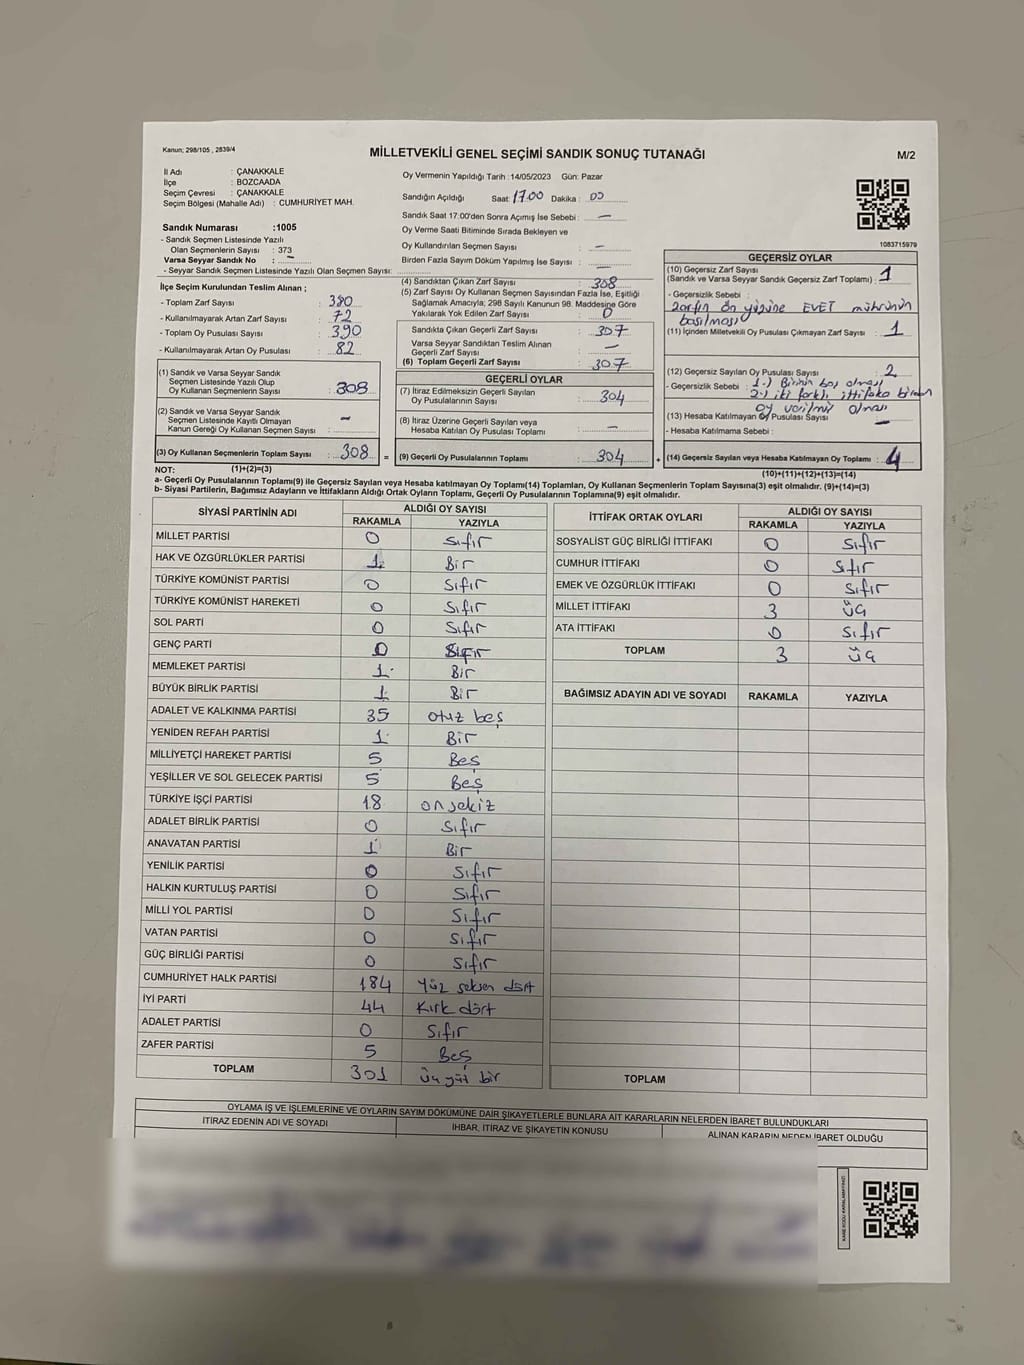 Kanun; 298/105 , 2839/4
MİLLETVEKİLİ GENEL SEÇİMİ SANDIK SONUÇ TUTANAĞI
M/2
İl Adı : ÇANAKKALE
İlçe : BOZCAADA
Seçim Çevresi : ÇANAKKALE
Seçim Bölgesi (Mahalle Adı) : CUMHURİYET MAH.
Oy Vermenin Yapıldığı Tarih :14/05/2023 Gün: Pazar
Sandığın Açıldığı Saat: 17.00 Dakika : 00
Sandık Saat 17:00'den Sonra Açımış İse Sebebi : —
Oy Verme Saati Bitiminde Sırada Bekleyen ve
Oy Kullandırılan Seçmen Sayısı : —
Birden Fazla Sayım Döküm Yapılmış İse Sayısı : —
1083715979
Sandık Numarası :1005
- Sandık Seçmen Listesinde Yazılı
Olan Seçmenlerin Sayısı : 373
Varsa Seyyar Sandık No : —
- Seyyar Sandık Seçmen Listesinde Yazılı Olan Seçmen Sayısı:
İlçe Seçim Kurulundan Teslim Alınan ;
- Toplam Zarf Sayısı : 380
- Kullanılmayarak Artan Zarf Sayısı : 72
- Toplam Oy Pusulası Sayısı : 390
- Kullanılmayarak Artan Oy Pusulası : 82
(1) Sandık ve Varsa Seyyar Sandık
Seçmen Listesinde Yazılı Olup
Oy Kullanan Seçmenlerin Sayısı : 308
(2) Sandık ve Varsa Seyyar Sandık
Seçmen Listesinde Kayıtlı Olmayan
Kanun Gereği Oy Kullanan Seçmen Sayısı : —
(3) Oy Kullanan Seçmenlerin Toplam Sayısı : 308 =
(1)+(2)=(3)
(4) Sandıktan Çıkan Zarf Sayısı : 308
(5) Zarf Sayısı Oy Kullanan Seçmen Sayısından Fazla İse, Eşitliği
Sağlamak Amacıyla; 298 Sayılı Kanunun 98. Maddesine Göre
Yakılarak Yok Edilen Zarf Sayısı : 0
Sandıkta Çıkan Geçerli Zarf Sayısı : 307
Varsa Seyyar Sandıktan Teslim Alınan
Geçerli Zarf Sayısı : —
(6) Toplam Geçerli Zarf Sayısı : 307
GEÇERLİ OYLAR
(7) İtiraz Edilmeksizin Geçerli Sayılan
Oy Pusulalarının Sayısı : 304
(8) İtiraz Üzerine Geçerli Sayılan veya
Hesaba Katılan Oy Pusulası Toplamı : —
(9) Geçerli Oy Pusulalarının Toplamı : 304 +
GEÇERSİZ OYLAR
(10) Geçersiz Zarf Sayısı
(Sandık ve Varsa Seyyar Sandık Geçersiz Zarf Toplamı) : 1
- Geçersizlik Sebebi :
zarfın ön yüzüne EVET mührünün
basılması
(11) İçinden Milletvekili Oy Pusulası Çıkmayan Zarf Sayısı : 1
(12) Geçersiz Sayılan Oy Pusulası Sayısı : 2
- Geçersizlik Sebebi : 1-) Birinin boş olması
2-) iki farklı ittifaka
oy verilmiş olması
(13) Hesaba Katılmayan Oy Pusulası Sayısı : —
- Hesaba Katılmama Sebebi :
(14) Geçersiz Sayılan veya Hesaba Katılmayan Oy Toplamı : 4
(10)+(11)+(12)+(13)=(14)
NOT:
a- Geçerli Oy Pusulalarının Toplamı(9) ile Geçersiz Sayılan veya Hesaba katılmayan Oy Toplamı(14) Toplamları, Oy Kullanan Seçmenlerin Toplam Sayısına(3) eşit olmalıdır. (9)+(14)=(3)
b- Siyasi Partilerin, Bağımsız Adayların ve İttifakların Aldığı Ortak Oyların Toplamı, Geçerli Oy Pusulalarının Toplamına(9) eşit olmalıdır.
SİYASİ PARTİNİN ADI ALDIĞI OY SAYISI
RAKAMLA YAZIYLA
MİLLET PARTİSİ 0 Sıfır
HAK VE ÖZGÜRLÜKLER PARTİSİ 1 Bir
TÜRKİYE KOMÜNİST PARTİSİ 0 Sıfır
TÜRKİYE KOMÜNİST HAREKETİ 0 Sıfır
SOL PARTİ 0 Sıfır
GENÇ PARTİ 0 Sıfır
MEMLEKET PARTİSİ 1 Bir
BÜYÜK BİRLİK PARTİSİ 1 Bir
ADALET VE KALKINMA PARTİSİ 35 otuz beş
YENİDEN REFAH PARTİSİ 1 Bir
MİLLİYETÇİ HAREKET PARTİSİ 5 Beş
YEŞİLLER VE SOL GELECEK PARTİSİ 5 Beş
TÜRKİYE İŞÇİ PARTİSİ 18 onsekiz
ADALET BİRLİK PARTİSİ 0 Sıfır
ANAVATAN PARTİSİ 1 Bir
YENİLİK PARTİSİ 0 Sıfır
HALKIN KURTULUŞ PARTİSİ 0 Sıfır
MİLLİ YOL PARTİSİ 0 Sıfır
VATAN PARTİSİ 0 Sıfır
GÜÇ BİRLİĞİ PARTİSİ 0 Sıfır
CUMHURİYET HALK PARTİSİ 184 Yüz seksen dört
İYİ PARTİ 44 Kırk dört
ADALET PARTİSİ 0 Sıfır
ZAFER PARTİSİ 5 Beş
TOPLAM 301 Üç yüz bir
İTTİFAK ORTAK OYLARI ALDIĞI OY SAYISI
RAKAMLA YAZIYLA
SOSYALİST GÜÇ BİRLİĞİ İTTİFAKI 0 Sıfır
CUMHUR İTTİFAKI 0 Sıfır
EMEK VE ÖZGÜRLÜK İTTİFAKI 0 Sıfır
MİLLET İTTİFAKI 3 üç
ATA İTTİFAKI 0 Sıfır
TOPLAM 3 üç
BAĞIMSIZ ADAYIN ADI VE SOYADI RAKAMLA YAZIYLA
TOPLAM
OYLAMA İŞ VE İŞLEMLERİNE VE OYLARIN SAYIM DÖKÜMÜNE DAİR ŞİKAYETLERLE BUNLARA AİT KARARLARIN NELERDEN İBARET BULUNDUKLARI
İTİRAZ EDENİN ADI VE SOYADI İHBAR, İTİRAZ VE ŞİKAYETİN KONUSU ALINAN KARARIN NEDEN İBARET OLDUĞU